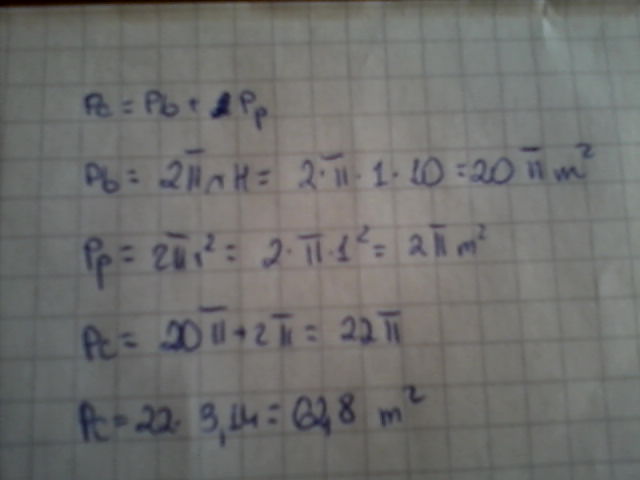 Pc = Pb + 2Pp
Pb = 2πrH = 2·π·1·10 = 20πm²
Pp = 2πr² = 2·π·1² = 2πm²
Pc = 20π+2π = 22π
Pc = 22·3,14 = 62,8 m²